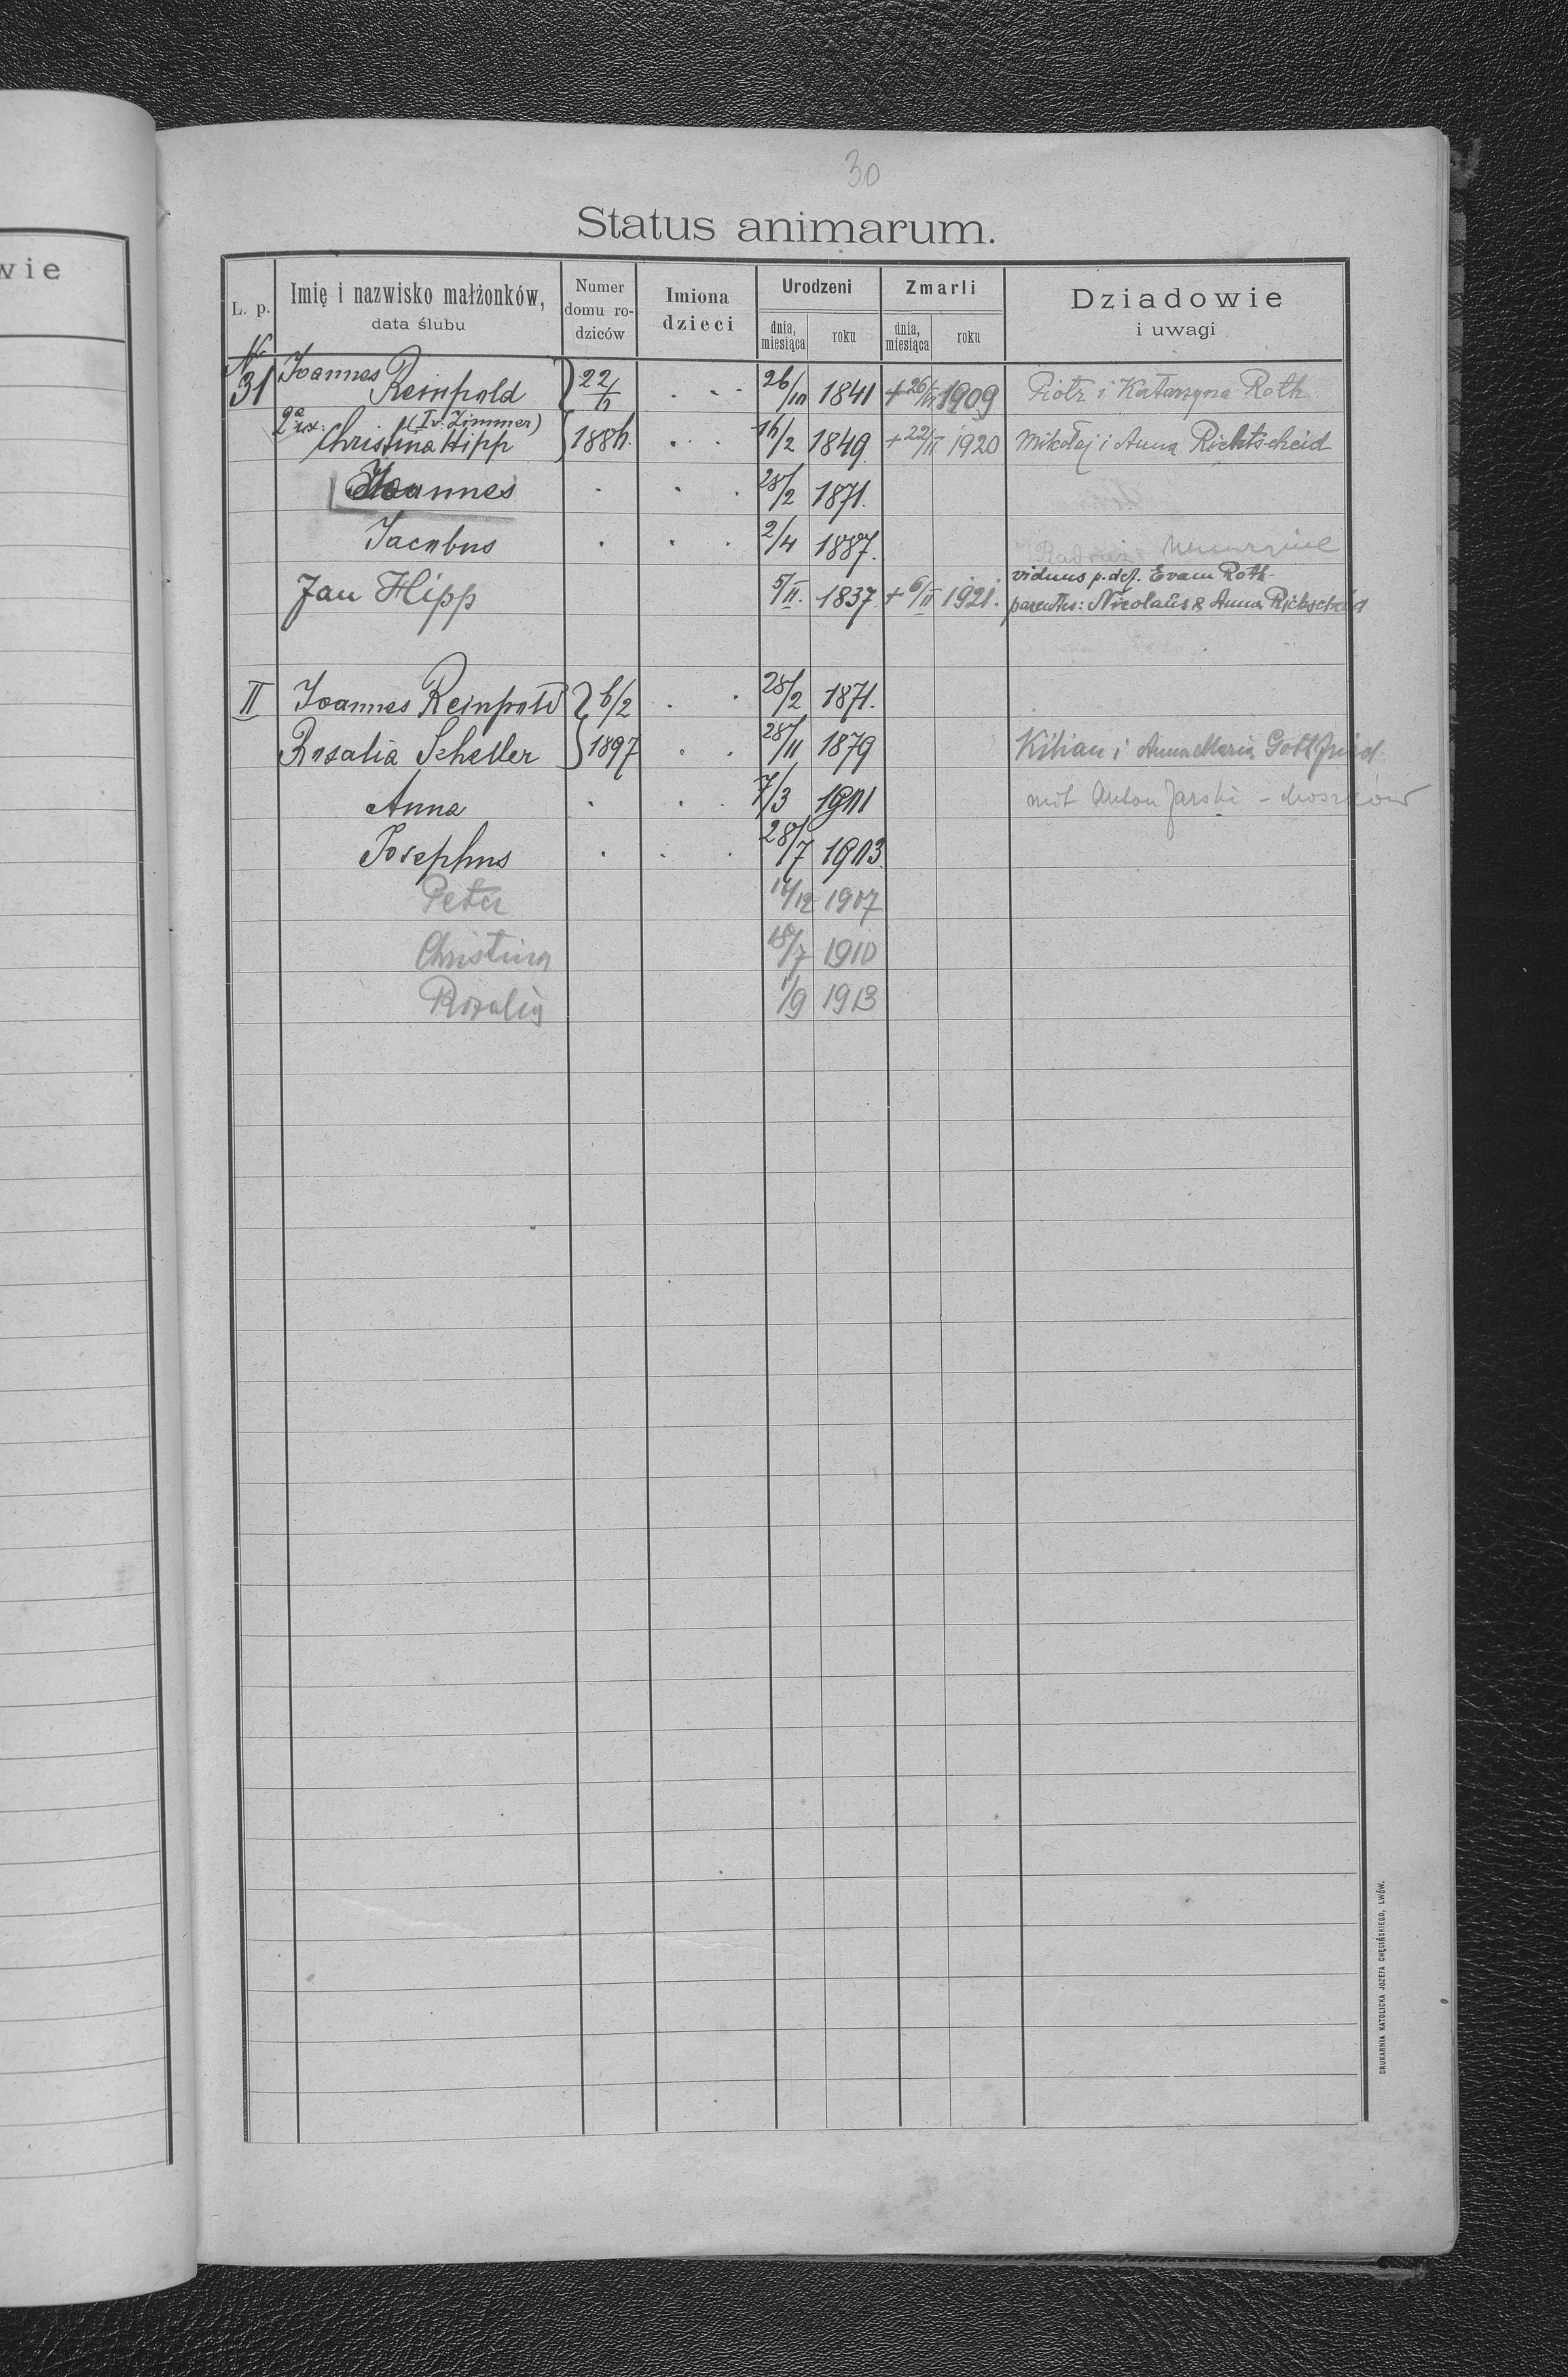 30
wie
Status animarum.
L. p.
Imię i nazwisko małżonków,
data ślubu
Numer
domu ro-
dziców
Imiona
dzieci
Urodzeni
dnia,
miesiąca
roku
Zmarli
dnia,
miesiąca
roku
Dziadowie
i uwagi
No
31 Joannes Reinpold } 22/6 . . 26/10 1841 + 26/ 1909 Piotr i Katarzyna Roth
2a ux: (I v. Zimmer)
Christina Hipp } 1886. . . . 16/2 1849 + 22/II 1920 Mikołaj i Anna Richtscheid
Joannes . . . 28/2 1871.
Jacobus . . . 2/4 1887.
viduus p. def. Evam Roth
Jan Hipp 5/II. 1837 + 6/II 1921. parentes: Nicolaus & Anna Richscheid
II Joannes Reinpold } 6/2 . . 28/2 1871.
Rosalia Scheller } 1897 . . 28/11 1879 Kilian i Anna Maria Gottfried
Anna . . . 7/3 1901 Anton Jarski -
Josephus . . . 28/7 1903.
Peter 14/12 1907
Christina 18/7 1910
Rozalia 1/9 1913
DRUKARNIA KATOLICKA JOZEFA CHĘCIŃSKIEGO, LWÓW.